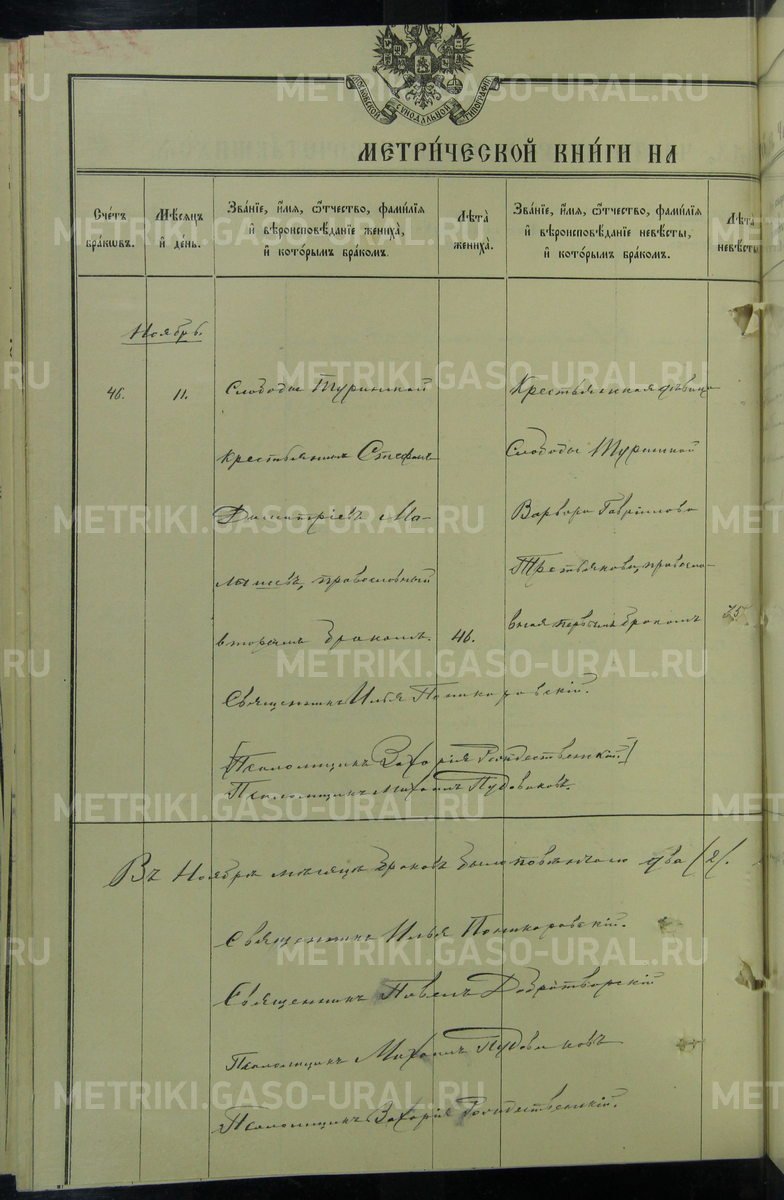 МОСКОВСКОЙ СѴНОДАЛЬНОЙ ТИПОГРАФІИ
МЕТРИ́ЧЕСКОЙ КНИ́ГИ НА
Сче́тъ бра́кѡвъ.
Мѣ́сяцъ и҆ де́нь.
Зва́нїе, и҆́мѧ, ѻ҆́тчество, фами́лїѧ и҆ вѣроисповѣ́данїе жениха̀, и҆ кото́рымъ бра́комъ.
Лѣта̀ жениха̀.
Зва́нїе, и҆́мѧ, ѻ҆́тчество, фами́лїѧ и҆ вѣроисповѣ́данїе невѣ́сты, и҆ кото́рымъ бра́комъ.
Лѣта̀ невѣ́сты
Ноябрь.
46.
11.
Слободы Туринской
крестьянинъ Стефанъ
Димитріевъ Ма-
лышевъ, православный
вторымъ бракомъ.
46.
Крестьянская дѣвица
Слободы Туринской
Варвара Гаврилова
Третьякова, правосла-
вная первымъ бракомъ
Священникъ Илья Поникаровскій.
[Псаломщикъ Захарія Рождественскій.]
Псаломщикъ Михаилъ Пудовиковъ.
Въ Ноябрѣ мѣсяцѣ браковъ было повѣнчано два /2/.
Священникъ Илья Поникаровскій.
Священникъ Павелъ Добротворскій
Псаломщикъ Михаилъ Пудовиковъ
Псаломщикъ Захарія Рождественскій.
METRIKI.GASO-URAL.RU